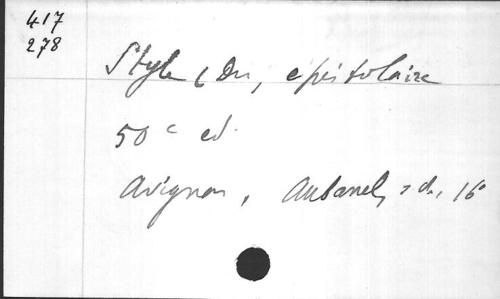 417
278
Style (Du, epistolaire
50c ed.
Avignon, Aubanel, s.d., 16°